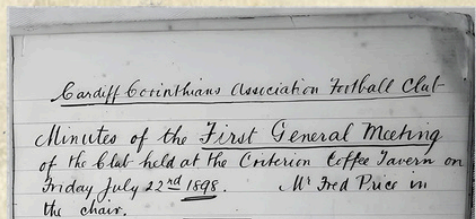 Cardiff Corinthians Association Football Club
Minutes of the First General Meeting
of the Club held at the Criterion Coffee Tavern on
Friday July 22nd 1898. Mr Fred Price in
the chair.